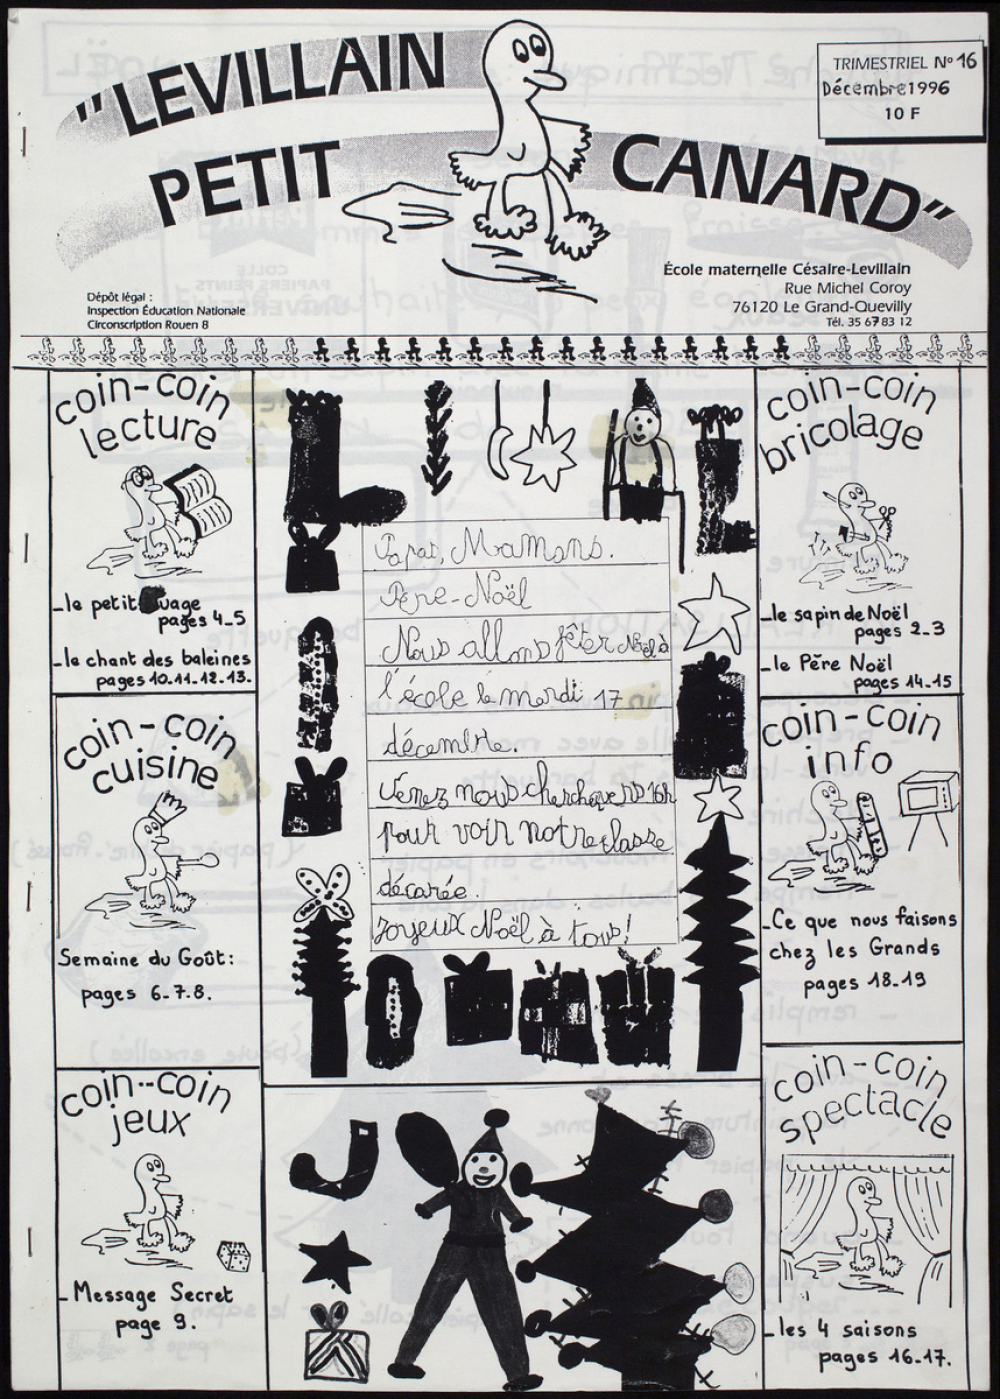 "LEVILLAIN
PETIT CANARD"
TRIMESTRIEL Nº 16
Décembre 1996
10 F
École maternelle Césaire-Levillain
Rue Michel Coroy
76120 Le Grand-Quevilly
Tél. 35 67 83 12
Dépôt légal :
Inspection Éducation Nationale
Circonscription Rouen 8
coin-coin
lecture
_le petit uage
pages 4_5
_le chant des baleines
pages 10.11.12.13.
coin-coin
cuisine
Semaine du Goût:
pages 6_7.8.
coin--coin
jeux
_Message Secret
page 9.
Papas, Mamans.
Père-Noël
Nous allons fêter Noël à
l'école le mardi 17
décembre.
Venez nous chercher 16h
pour voir notre classe
décorée.
Joyeux Noël à tous!
coin-coin
bricolage
_le sapin de Noël
pages 2_3
_le Père Noël
pages 14_15
coin-coin
info
_Ce que nous faisons
chez les Grands
pages 18_19
coin-coin
spectacle
_les 4 saisons
pages 16_17.